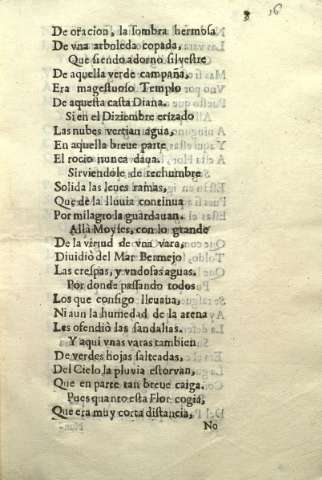 16
De oracion, la sombra hermosa
De vna arboleda copada,
Que siendo adorno silvestre
De aquella verde campaña,
Era magestuoso Templo
De aquesta casta Diana.
Si en el Diziembre erizado
Las nubes vertian agua,
En aquella breue parte
El rocio nunca daua.
Sirviendole de techumbre
Solida las leues ramas,
Que de la lluvia continua
Por milagro la guardauan.
Allà Moyses, con lo grande
De la virtud de vna vara,
Diuidiò del Mar Bermejo
Las crespas, y vndosas aguas.
Por donde passando todos
Los que consigo lleuaua,
Ni aun la humedad de la arena
Les ofendiò las sandalias.
Y aqui vnas varas tambien
De verdes hojas salteadas,
Del Cielo la pluvia estorvan,
Que en parte tan breue caiga.
Pues quanto esta Flor cogia,
Que era muy corta distancia,
No